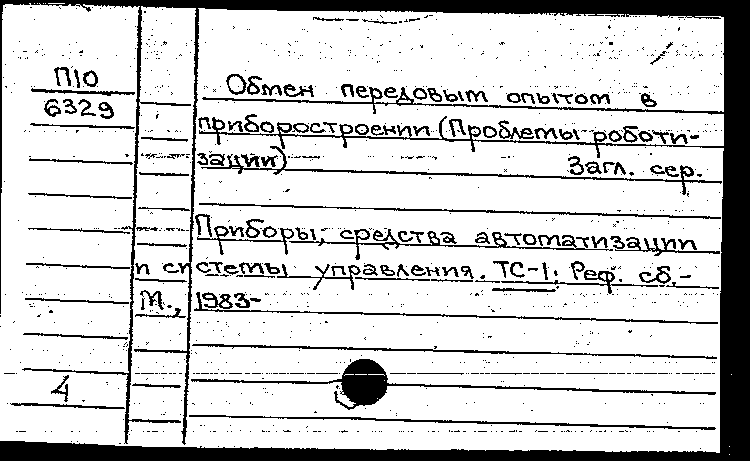 П10
6329
Обмен передовым опытом в
приборостроении (Проблемы роботи-
зации) Загл. сер.
Приборы, средства автоматизации
и системы управления. ТС-1: Реф. сб.-
М., 1983-
4